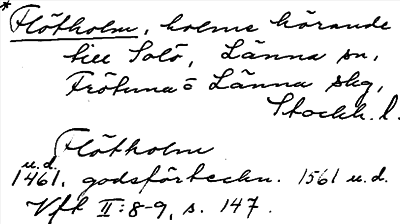 *Flötholm, holme hörande
till Solö, Länna sn,
Frötuna o Länna skg,
Stockh. l.
Flötholm
u.d.
1461. godsförteckn. 1561 u.d.
Vft II:8-9, s. 147.